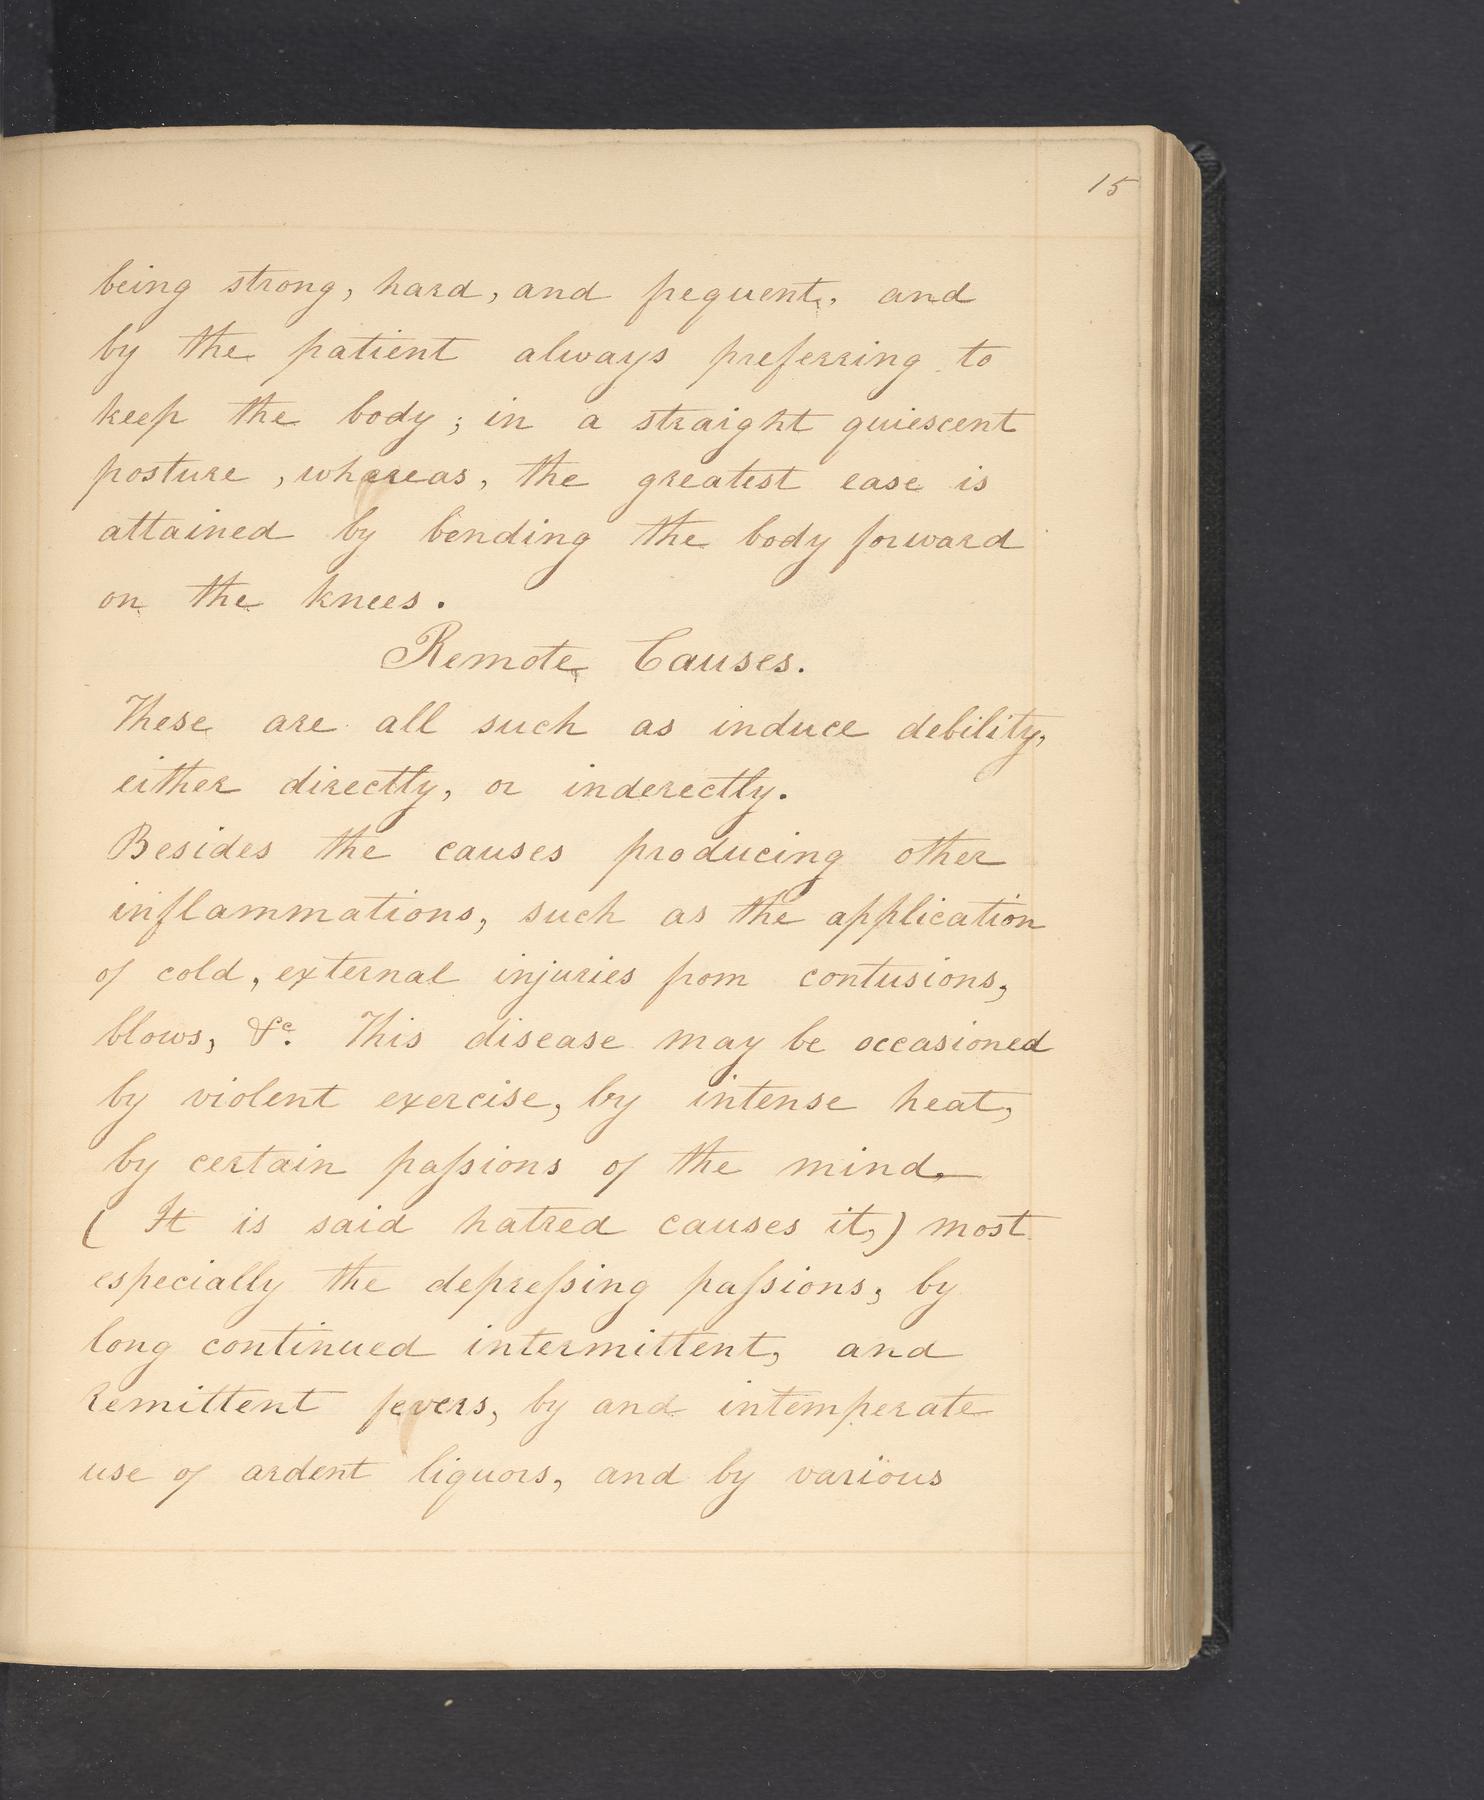 15
being strong, hard, and frequent, and
by the patient always preferring to
keep the body; in a straight quiescent
posture, whereas, the greatest ease is
attained by bending the body forward
on the knees.
Remote Causes.
These are all such as induce debility,
either directly, or inderectly.
Besides the causes producing other
inflammations, such as the application
of cold, external injuries from contusions,
blows, &c. This disease may be occasioned
by violent exercise, by intense heat,
by certain paſsions of the mind,
( It is said hatred causes it,) most
especially the depreſsing paſsions, by
long continued intermittent, and
remittent fevers, by and intemperate
use of ardent liquors, and by various